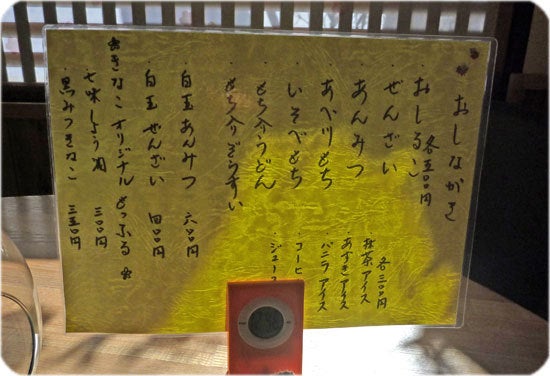 おしながき
各五〇〇円
・おしるこ
・ぜんざい
・あんみつ
・あべ川もち
・いそべもち
・もち入うどん
・もち入ぞうすい
各三〇〇円
・抹茶アイス
・あずきアイス
・バニラアイス
・コーヒ
・ジュース
・白玉あんみつ 六〇〇円
・白玉ぜんざい 四〇〇円
きなこオリジナルもっふる
・七味しょう油 三〇〇円
・黒みつきなこ 三五〇円